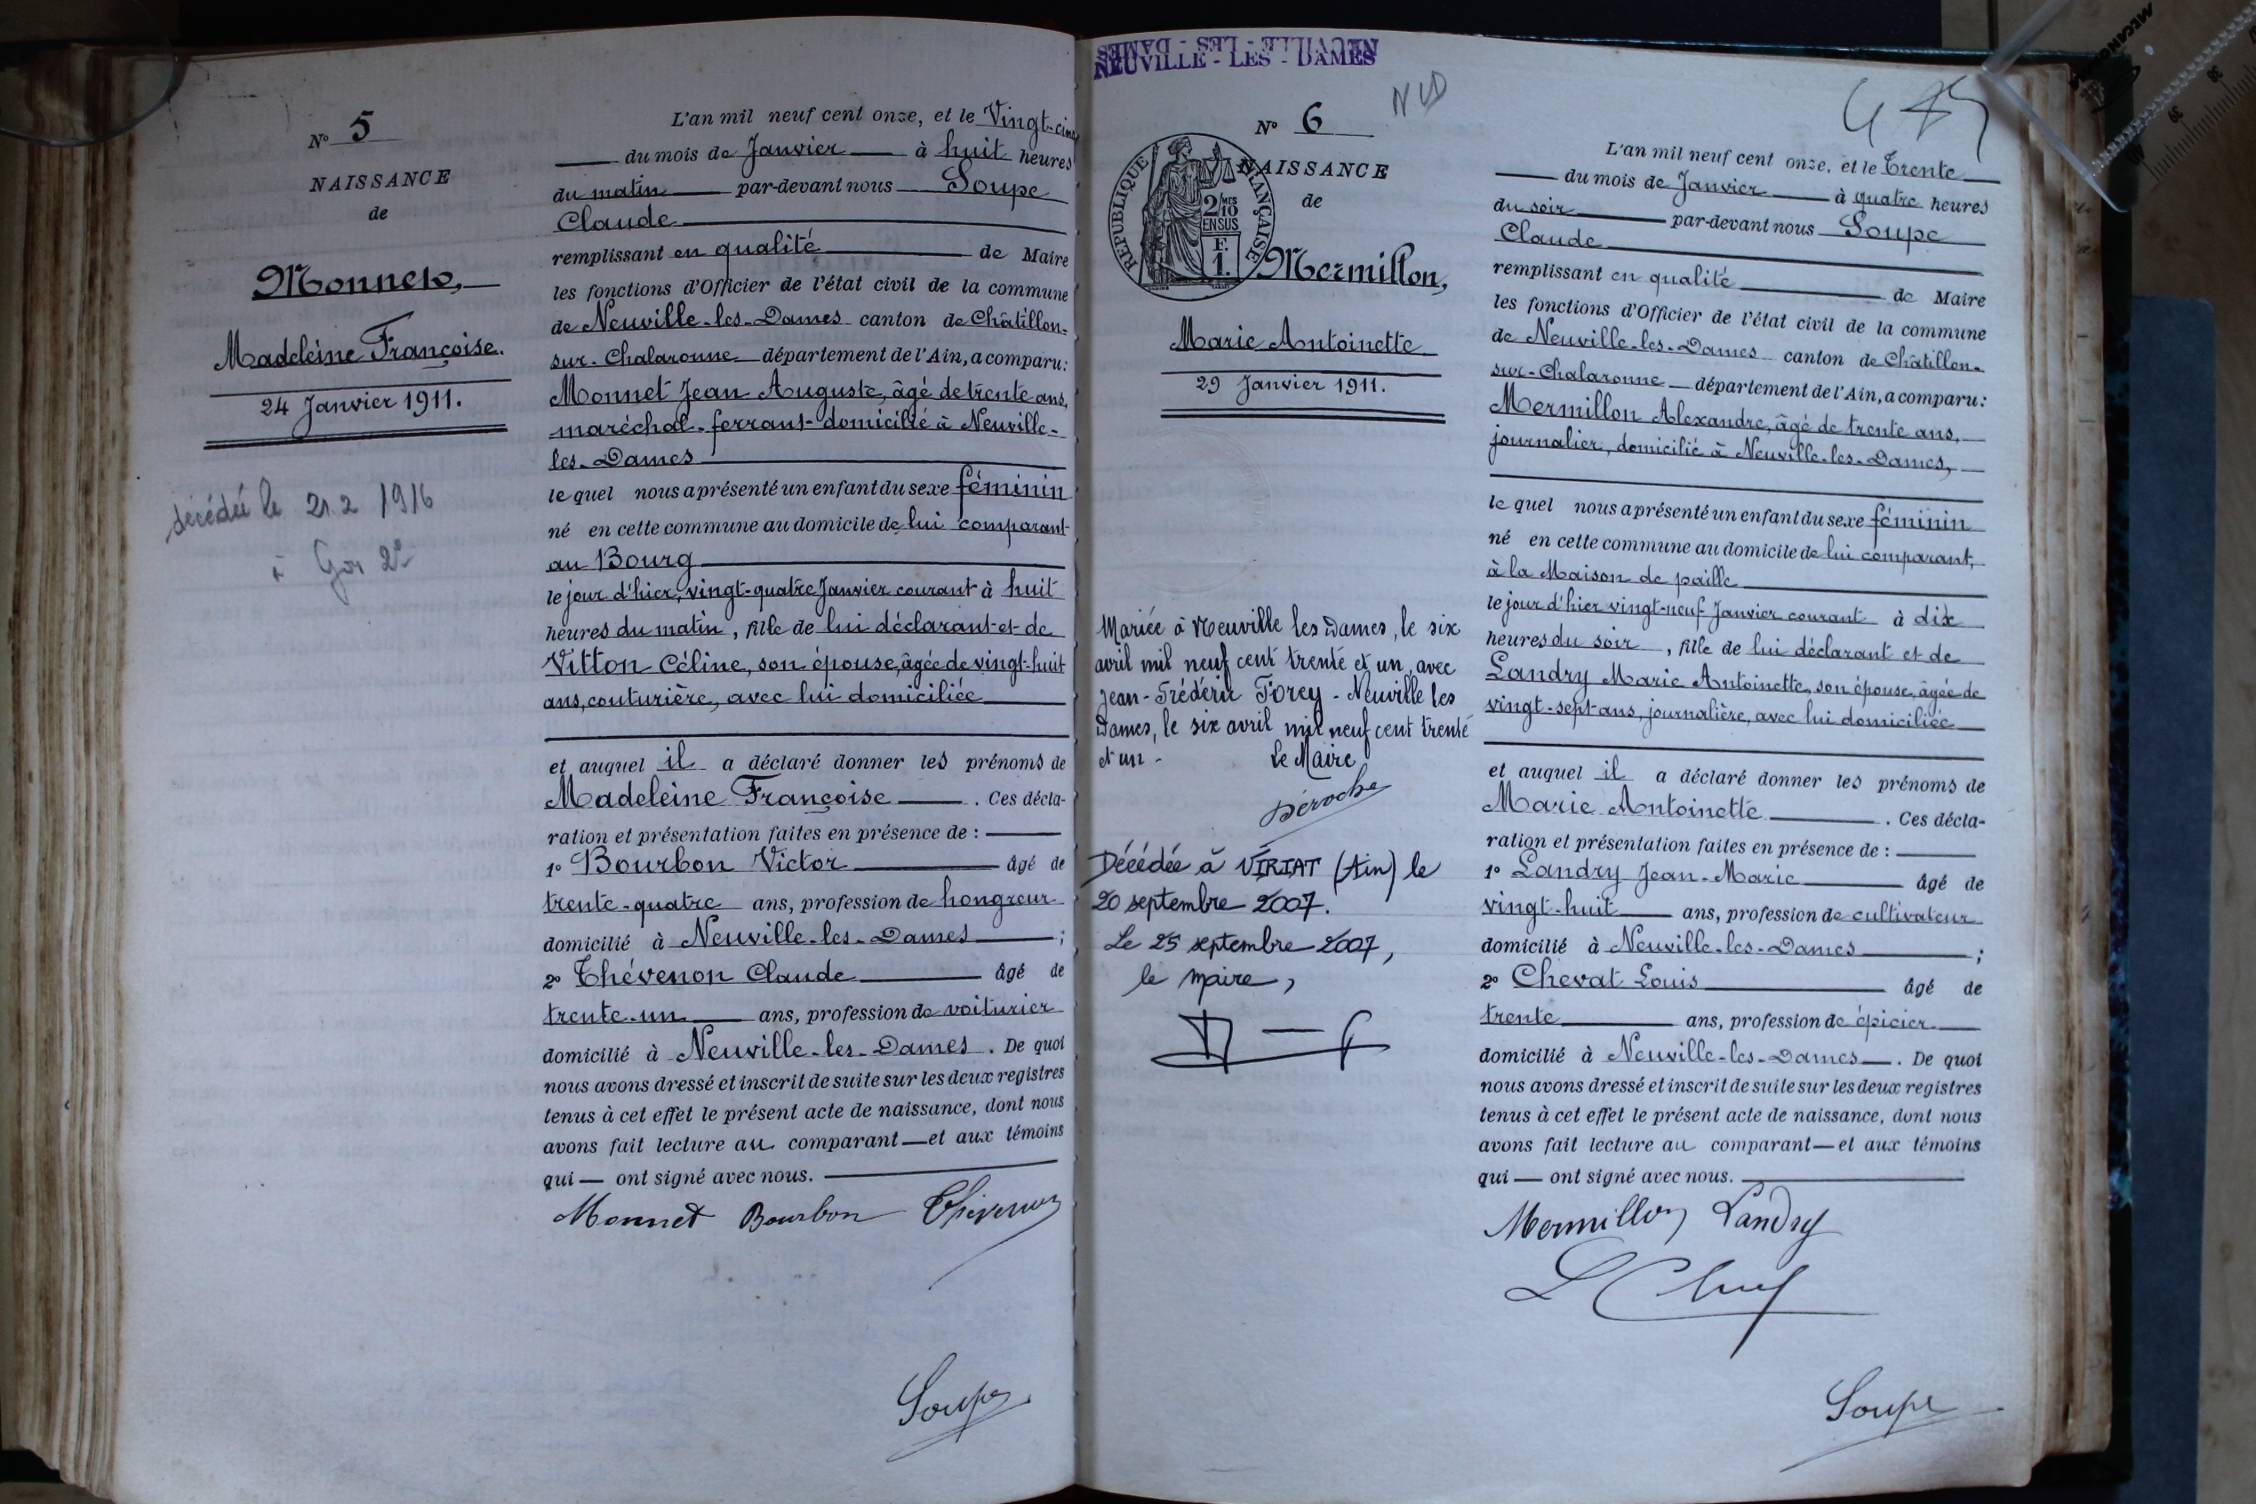 N° 5
NAISSANCE
de
Monnet,
Madeleine Françoise.
24 Janvier 1911.
décédée le 21 2 1916
à 2e
L'an mil neuf cent onze, et le Vingt-cinq
du mois de Janvier à huit heures
du matin par-devant nous Soupe
Claude
remplissant en qualité de Maire
les fonctions d'Officier de l'état civil de la commune
de Neuville-les-Dames canton de Châtillon-
sur-Chalaronne département de l'Ain, a comparu:
Monnet Jean Auguste, âgé de trente ans,
maréchal-ferrant domicilié à Neuville-
les-Dames
le quel nous a présenté un enfant du sexe féminin
né en cette commune au domicile de lui comparant
au Bourg
le jour d'hier, vingt-quatre Janvier courant à huit
heures du matin, fille de lui déclarant et de
Vitton Céline, son épouse, âgée de vingt-huit
ans, couturière, avec lui domiciliée
et auquel il a déclaré donner les prénoms de
Madeleine Françoise . Ces décla-
ration et présentation faites en présence de :
1° Bourbon Victor âgé de
trente-quatre ans, profession de hongreur
domicilié à Neuville-les-Dames ;
2° Thévenon Claude âgé de
trente-un ans, profession de voiturier
domicilié à Neuville-les-Dames. De quoi
nous avons dressé et inscrit de suite sur les deux registres
tenus à cet effet le présent acte de naissance, dont nous
avons fait lecture au comparant — et aux témoins
qui — ont signé avec nous.
Monnet Bourbon Thévenon
Soupe
NEUVILLE - LES - DAMES
NEUVILLE - LES - DAMES
NLD
N° 6
RÉPUBLIQUE FRANÇAISE
2/10 MES
EN SUS
F.
1.
NAISSANCE
de
Mermillon,
Marie Antoinette
29 Janvier 1911.
Mariée à Neuville les Dames, le six
avril mil neuf cent trente et un, avec
Jean-Frédéric Forey - Neuville les
Dames, le six avril mil neuf cent trente
et un - Le Maire
Déroche
Décédée à VIRIAT (Ain) le
20 septembre 2007.
Le 25 septembre 2007,
le maire,
L'an mil neuf cent onze, et le Trente
du mois de Janvier à quatre heures
du soir par-devant nous Soupe
Claude
remplissant en qualité de Maire
les fonctions d'Officier de l'état civil de la commune
de Neuville-les-Dames canton de Châtillon-
sur-Chalaronne département de l'Ain, a comparu:
Mermillon Alexandre, âgé de trente ans,
journalier, domicilié à Neuville-les-Dames,
le quel nous a présenté un enfant du sexe féminin
né en cette commune au domicile de lui comparant,
à la Maison de paille
le jour d'hier vingt-neuf Janvier courant à dix
heures du soir, fille de lui déclarant et de
Landry Marie Antoinette, son épouse, âgée de
vingt-sept ans, journalière, avec lui domiciliée
et auquel il a déclaré donner les prénoms de
Marie Antoinette . Ces décla-
ration et présentation faites en présence de :
1° Landry Jean-Marie âgé de
vingt-huit ans, profession de cultivateur
domicilié à Neuville-les-Dames ;
2° Chevat Louis âgé de
trente ans, profession de épicier
domicilié à Neuville-les-Dames. De quoi
nous avons dressé et inscrit de suite sur les deux registres
tenus à cet effet le présent acte de naissance, dont nous
avons fait lecture au comparant — et aux témoins
qui — ont signé avec nous.
Mermillon Landry
Soupe